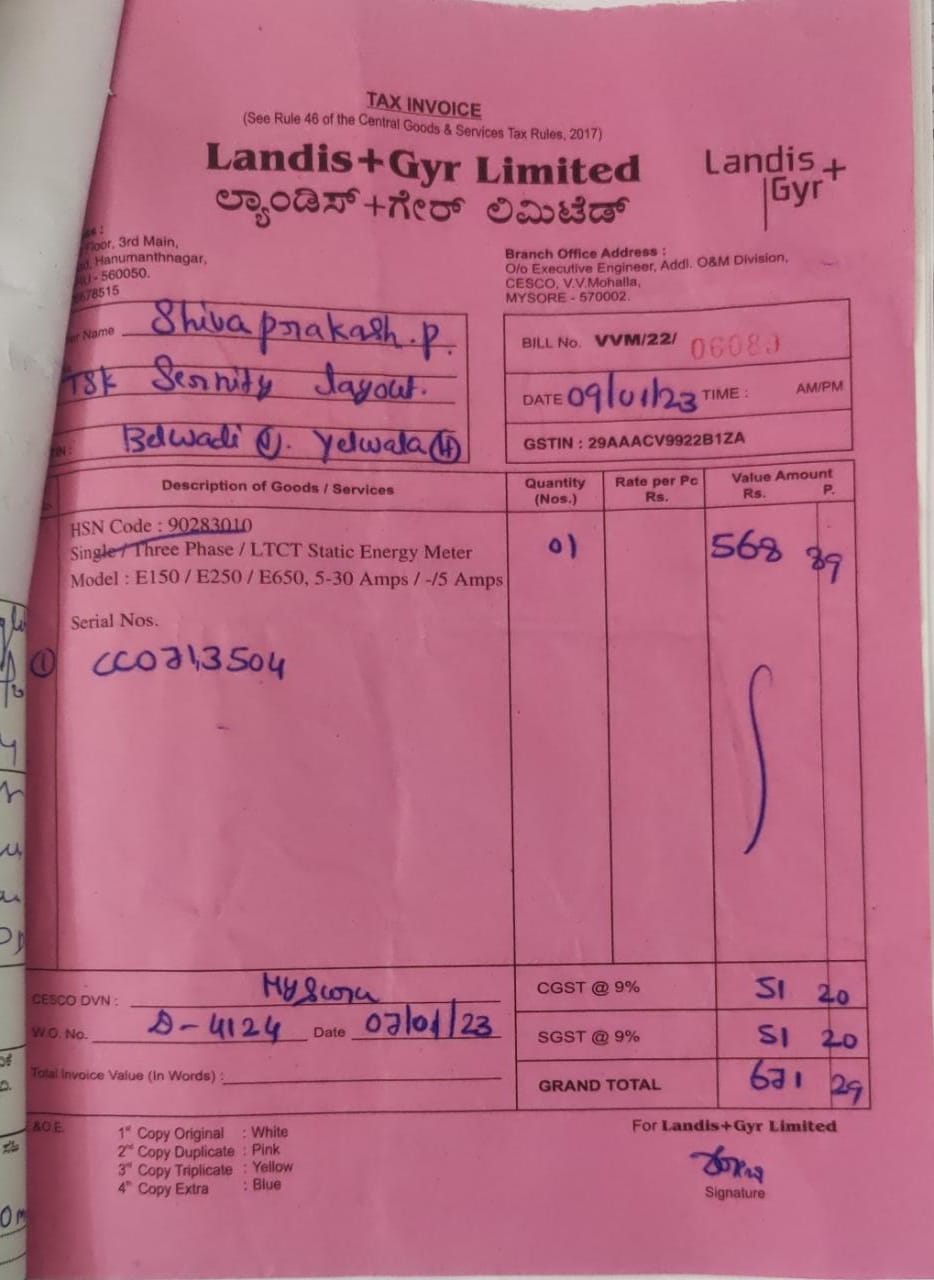 TAX INVOICE
(See Rule 46 of the Central Goods & Services Tax Rules, 2017)
Landis+Gyr Limited
ಲ್ಯಾಂಡಿಸ್+ಗೇರ್ ಲಿಮಿಟೆಡ್
Landis+
Gyr
Floor, 3rd Main,
Hanumanthnagar,
- 560050.
678515
Branch Office Address :
O/o Executive Engineer, Addl. O&M Division,
CESCO, V.V.Mohalla,
MYSORE - 570002.
Name Shivaprakash.P.
TSK Sernity layout.
Belwadi (V). Yelwala (H)
BILL No. VVM/22/ 06089
DATE 09/01/23 TIME : AM/PM
GSTIN : 29AAACV9922B1ZA
Description of Goods / Services Quantity (Nos.) Rate per Pc Rs. Value Amount Rs. P.
HSN Code : 90283010
Single / Three Phase / LTCT Static Energy Meter 01 568 89
Model : E150 / E250 / E650, 5-30 Amps / -/5 Amps
Serial Nos.
① CC0713504
CESCO DVN : Mysore
W.O. No. D-4124 Date 07/01/23
Total Invoice Value (In Words) :
CGST @ 9% 51 20
SGST @ 9% 51 20
GRAND TOTAL 671 29
&O.E.
1st Copy Original : White
2nd Copy Duplicate : Pink
3rd Copy Triplicate : Yellow
4th Copy Extra : Blue
For Landis+Gyr Limited
Signature